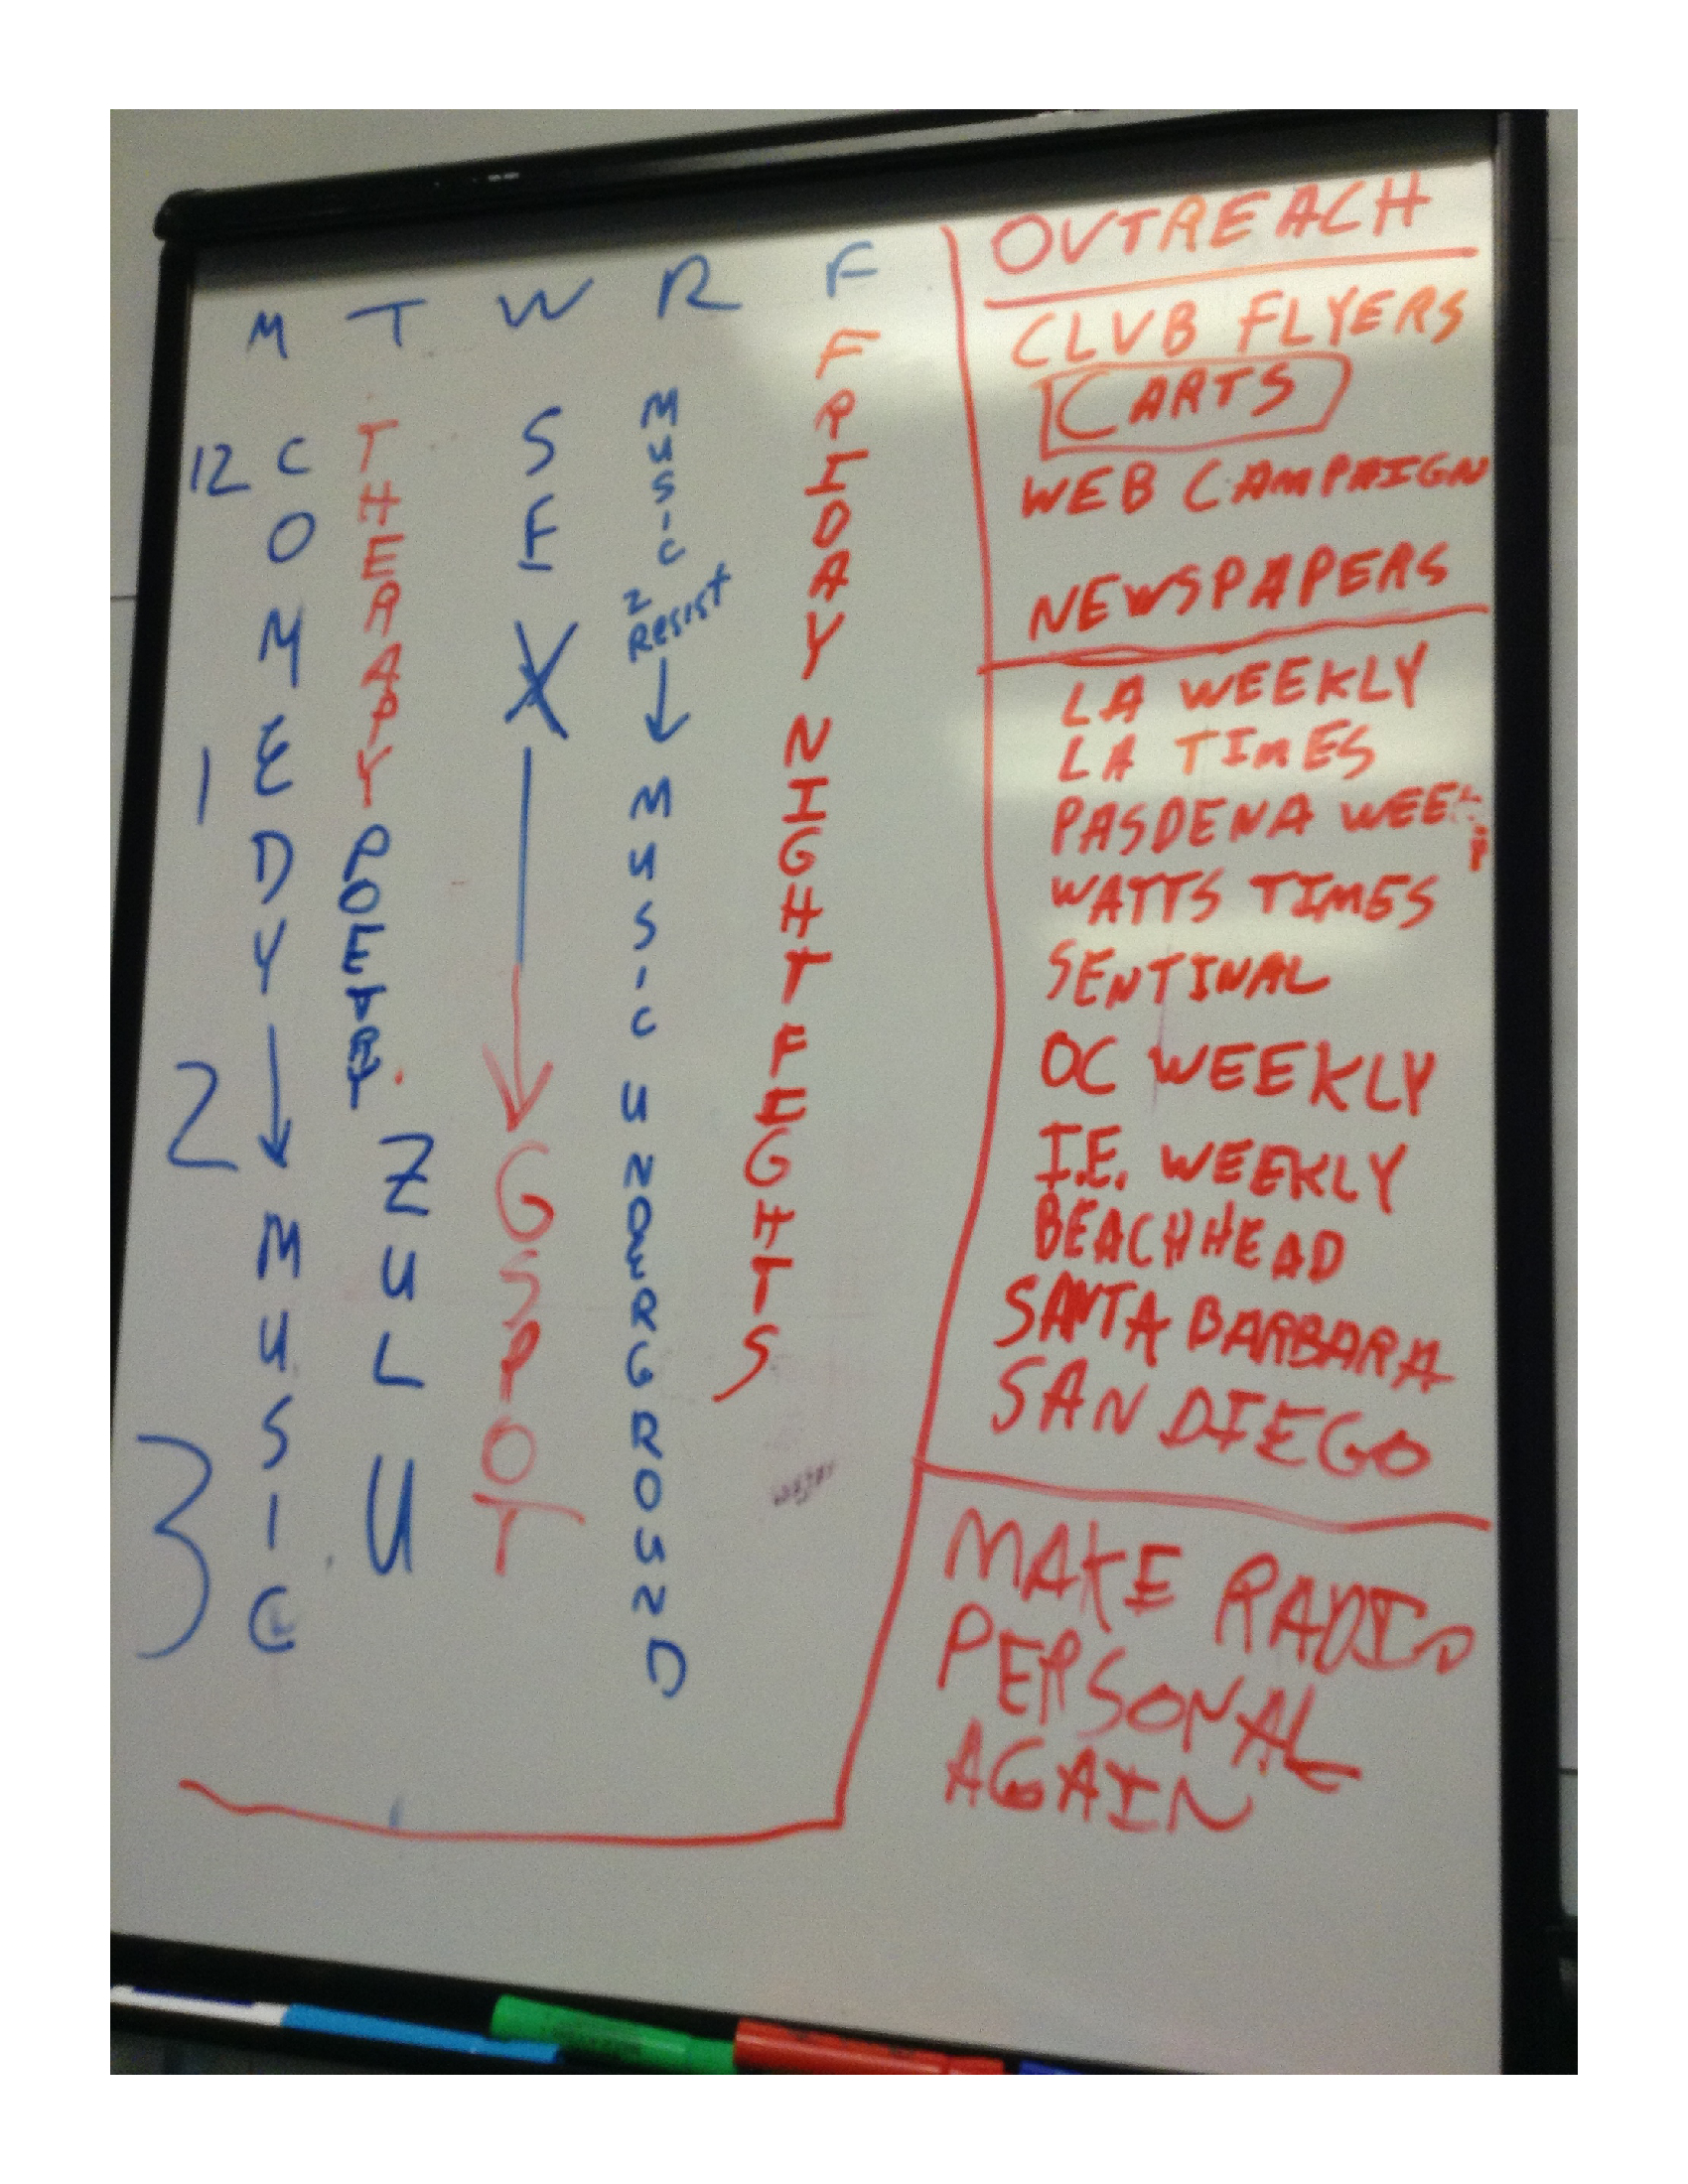 M T W R F
12
1
2
3
COMEDY
MUSIC
THERAPY
POETRY
ZULU
SEX
G SPOT
MUSIC
2
Resist
MUSIC UNDERGROUND
FRIDAY NIGHT FEGHTS
OUTREACH
CLUB FLYERS
CARTS
WEB CAMPAIGN
NEWSPAPERS
LA WEEKLY
LA TIMES
PASDENA
WATTS TIMES
SENTINAL
OC WEEKLY
I.E. WEEKLY
BEACHHEAD
SANTA BARBARA
SAN DIEGO
MAKE RADIO
PERSONAL
AGAIN